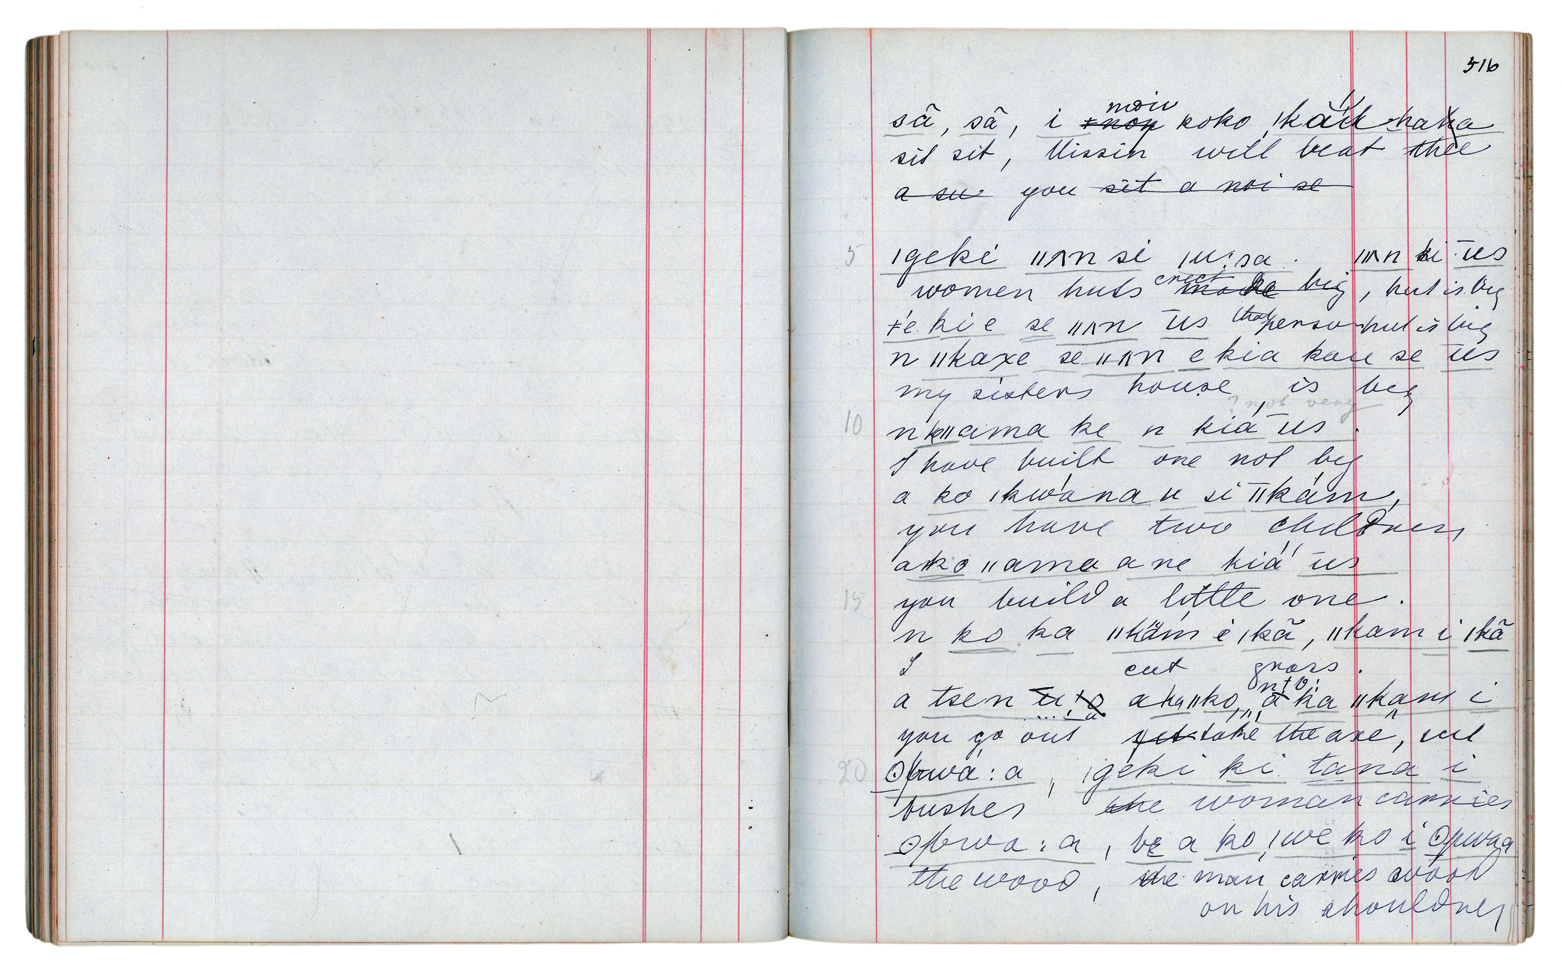 516
moiu
sā, sā, i koko ǀkăú haka
sit sit, Missin will beat thee
a su you sit a noise
5 ǀgeki ǁʌn si ǀu:sa. ǁʌn ki ūs
erect
women huts made big, hut is big
ǂe kie se ǁʌn ūs that person hut is big
n ǁkaxe se ǁʌn ekia kou se ūs
my sisters house is big
? not very
10 n ǁama ke n kiá ūs.
I have built one not big
a ko ǀkwána u si ǁkám,
you have two children
ako ǁama a ne kiá ūs
15 you build a little one.
n ko ka ǁkäm é ǀkā, ǁkam i ǀkā
I cut grass.
a tsen a ka ǁkam i
you go out take the axe, cut
20 ʘpwa:a, ǀgéki ki tana i
bushes the woman carries
ʘpwa:a, a ko ǀwe ko i ʘpwaa
the wood, the man carries wood
on his shoulder